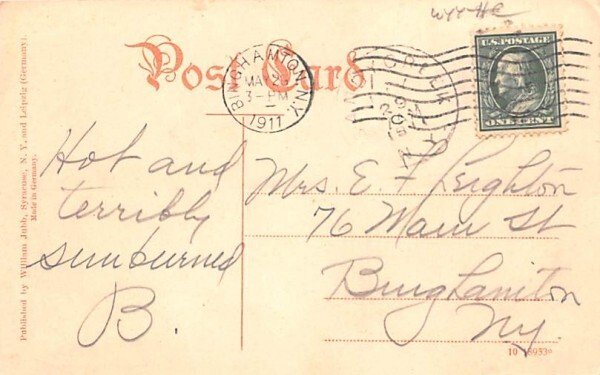 WYY-HC
Post Card
BINGHAMTON, N.Y.
MA 2
3-PM
1911
U.S. POSTAGE
ONE CENT
Hot and
terribly
sunburned
B.
Mrs. E. F. Leighton
76 Main St
Binghamton
NY.
Published by William Jubb, Syracuse, N. Y. and Leipzig (Germany).
Made in Germany.